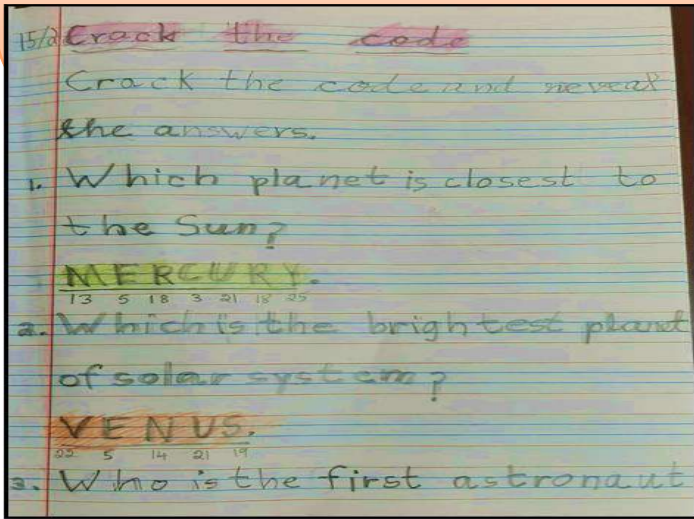 15/2 Crack the code
Crack the code and reveal
the answers.
1. Which planet is closest to
the Sun?
MERCURY.
13 5 18 3 21 18 25
2. Which is the brightest planet
of solar system?
VENUS.
22 5 14 21 19
3. Who is the first astronaut